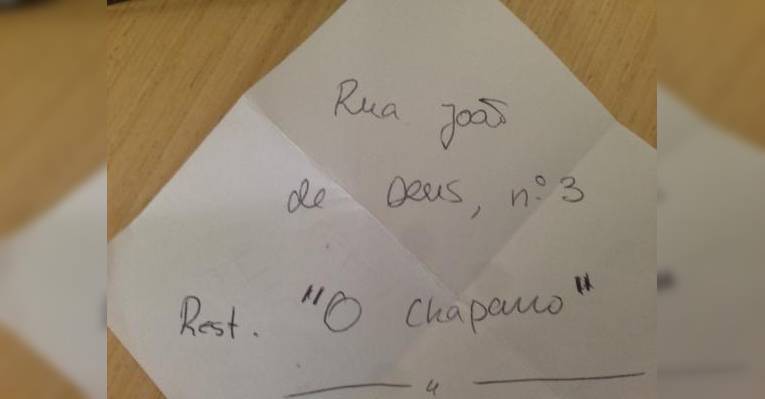 Rua João
de Deus, nº 3
Rest. "O Chaparro"